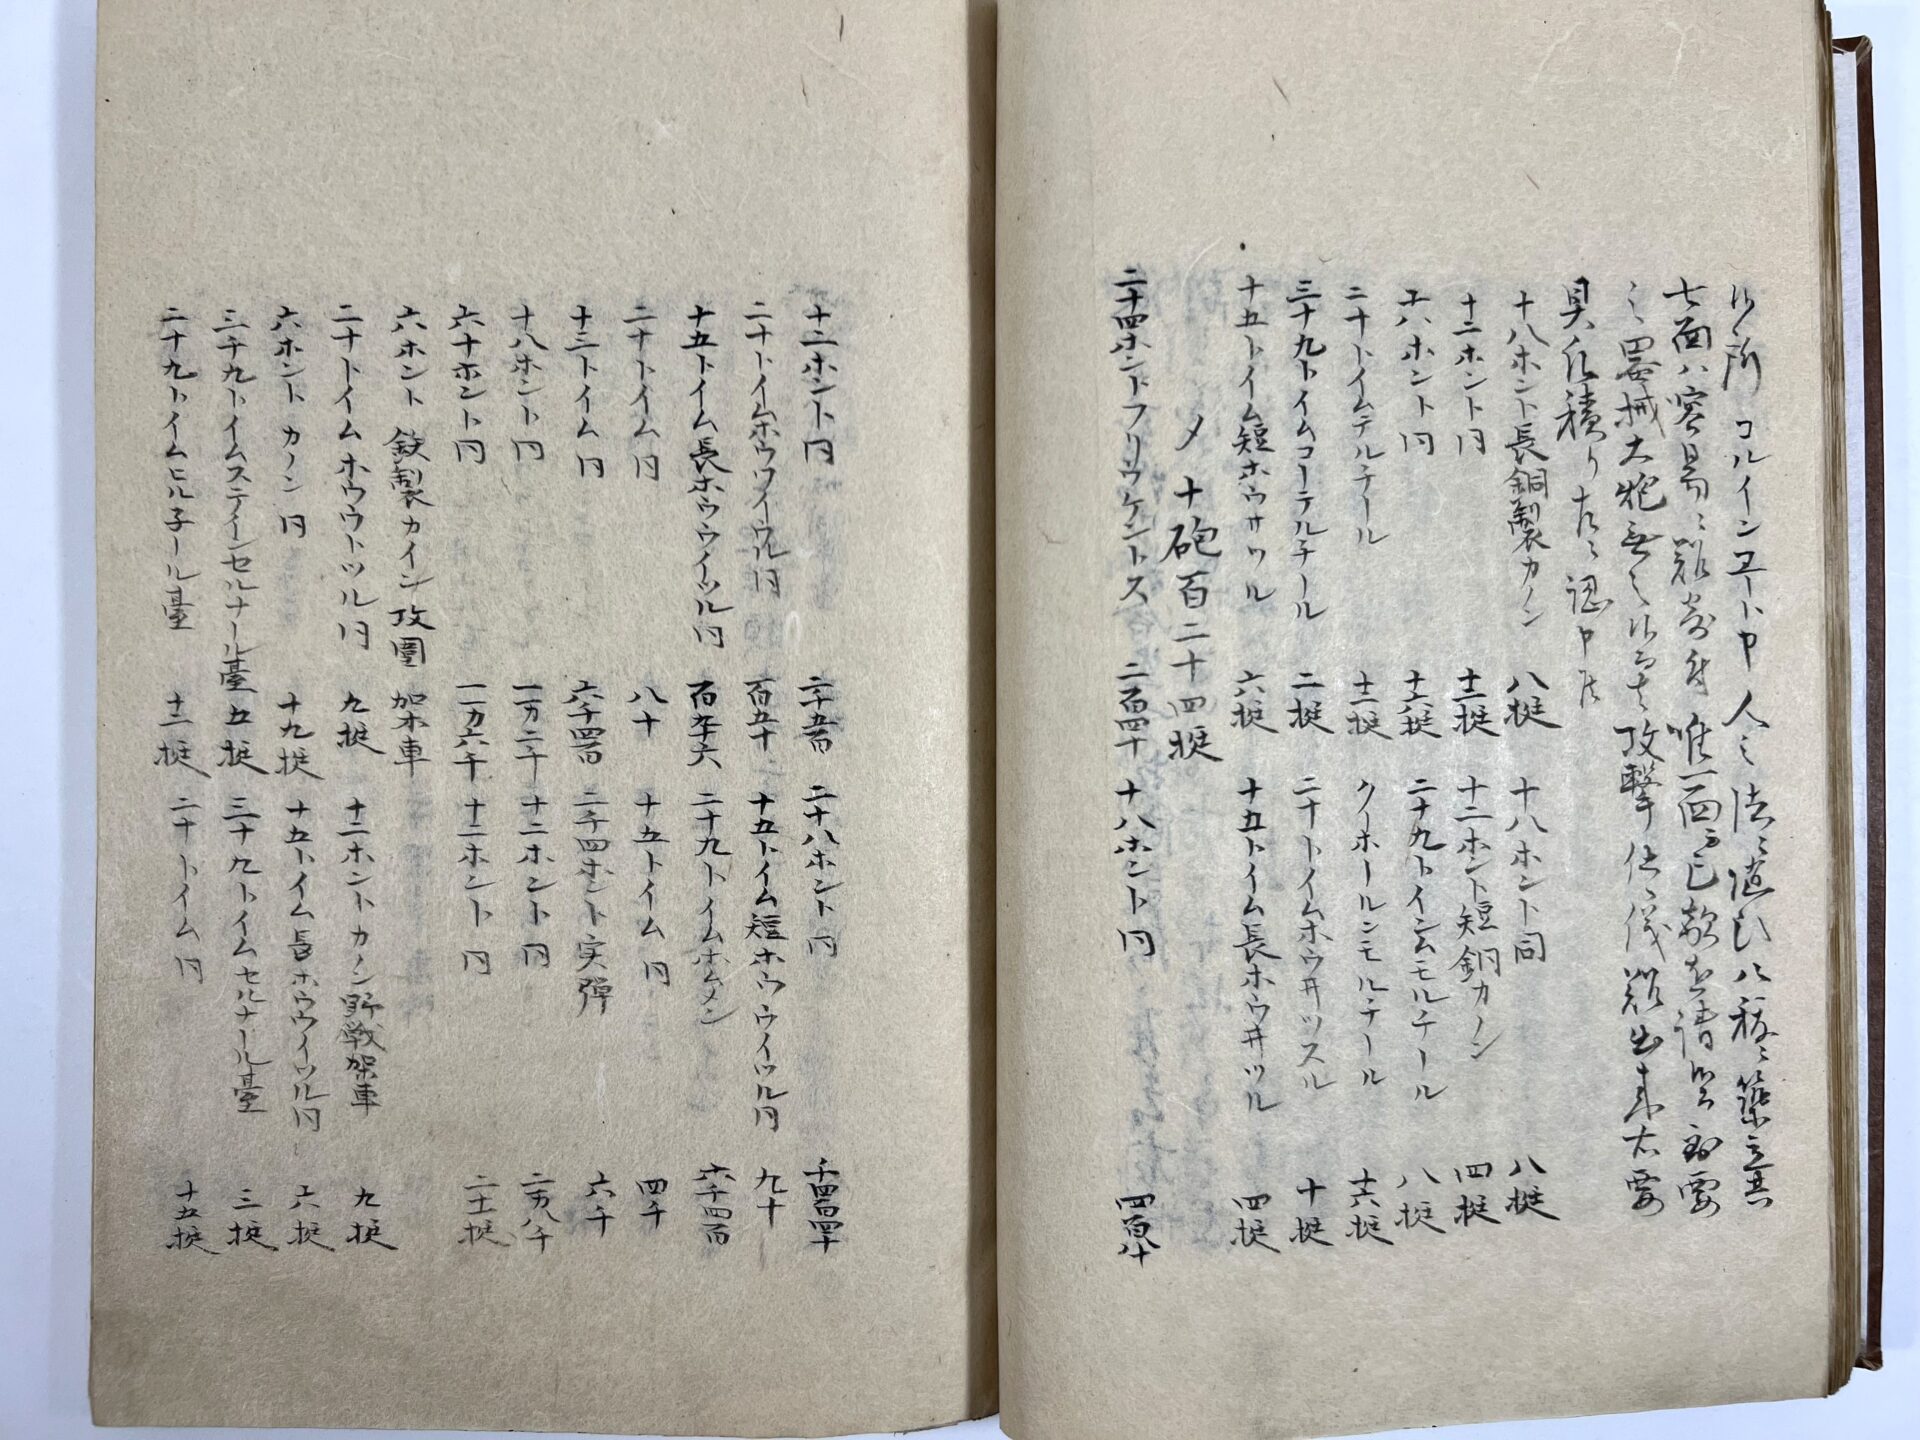 此所コルインコート申人之法ニ随ひ八稜ニ築立其
七面ハ容易ニ難寄付唯一面 已敵を請候 要
之器械大砲無之候而者攻撃仕候儀難出来右要
具凡積り左ニ認申候
十八ホント長銅製カノン 八挺 十八ホント同 八挺
十二ホント同 十二挺 十二ホント短銅カノン 四挺
十六ホント同 十六挺 二十九トインムモルチール 八挺
二十トイムテルチール 十二挺 クノホールンモルチール 十六挺
三十九トイムコーテルチール 二挺 二十トイムホウヰツスル 十挺
十五トイム短ホウサツル 六挺 十五トイム長ホウヰツル 四挺
〆十砲百二十四挺
二十四ホントフリウケントス 二百四十 十八ホント同 四百八十
十二ホント同 二千五百 二十八ホント同 千四百四十
二十トイムホウワイウル同 百五十 十五トイム短ホウウイツル同 九十
十五トイム長ホウウイツル同 百 六 二十九トイムホムメン 六千四百
二十トイム同 八十 十五トイム同 四千
十三トイム同 六千四百 二十四ホント実弾 六千
十八ホント同 一万二千 十二ホント同 二万八千
六十ホント同 一万六千 十二ホント同 二十挺
六ホント鉄製カイン攻圍架車
二十トイムホウウトツル同 九挺 十二ホントカノン野戦架車 九挺
六ホントカノン同 十九挺 十五トイム長ホウウイツル同 六挺
三十九トイムステインセルナール臺 五挺 三十九トイムセルナール臺 三挺
二十九トイムヒル子ール臺 十二挺 二十トイム同 十五挺